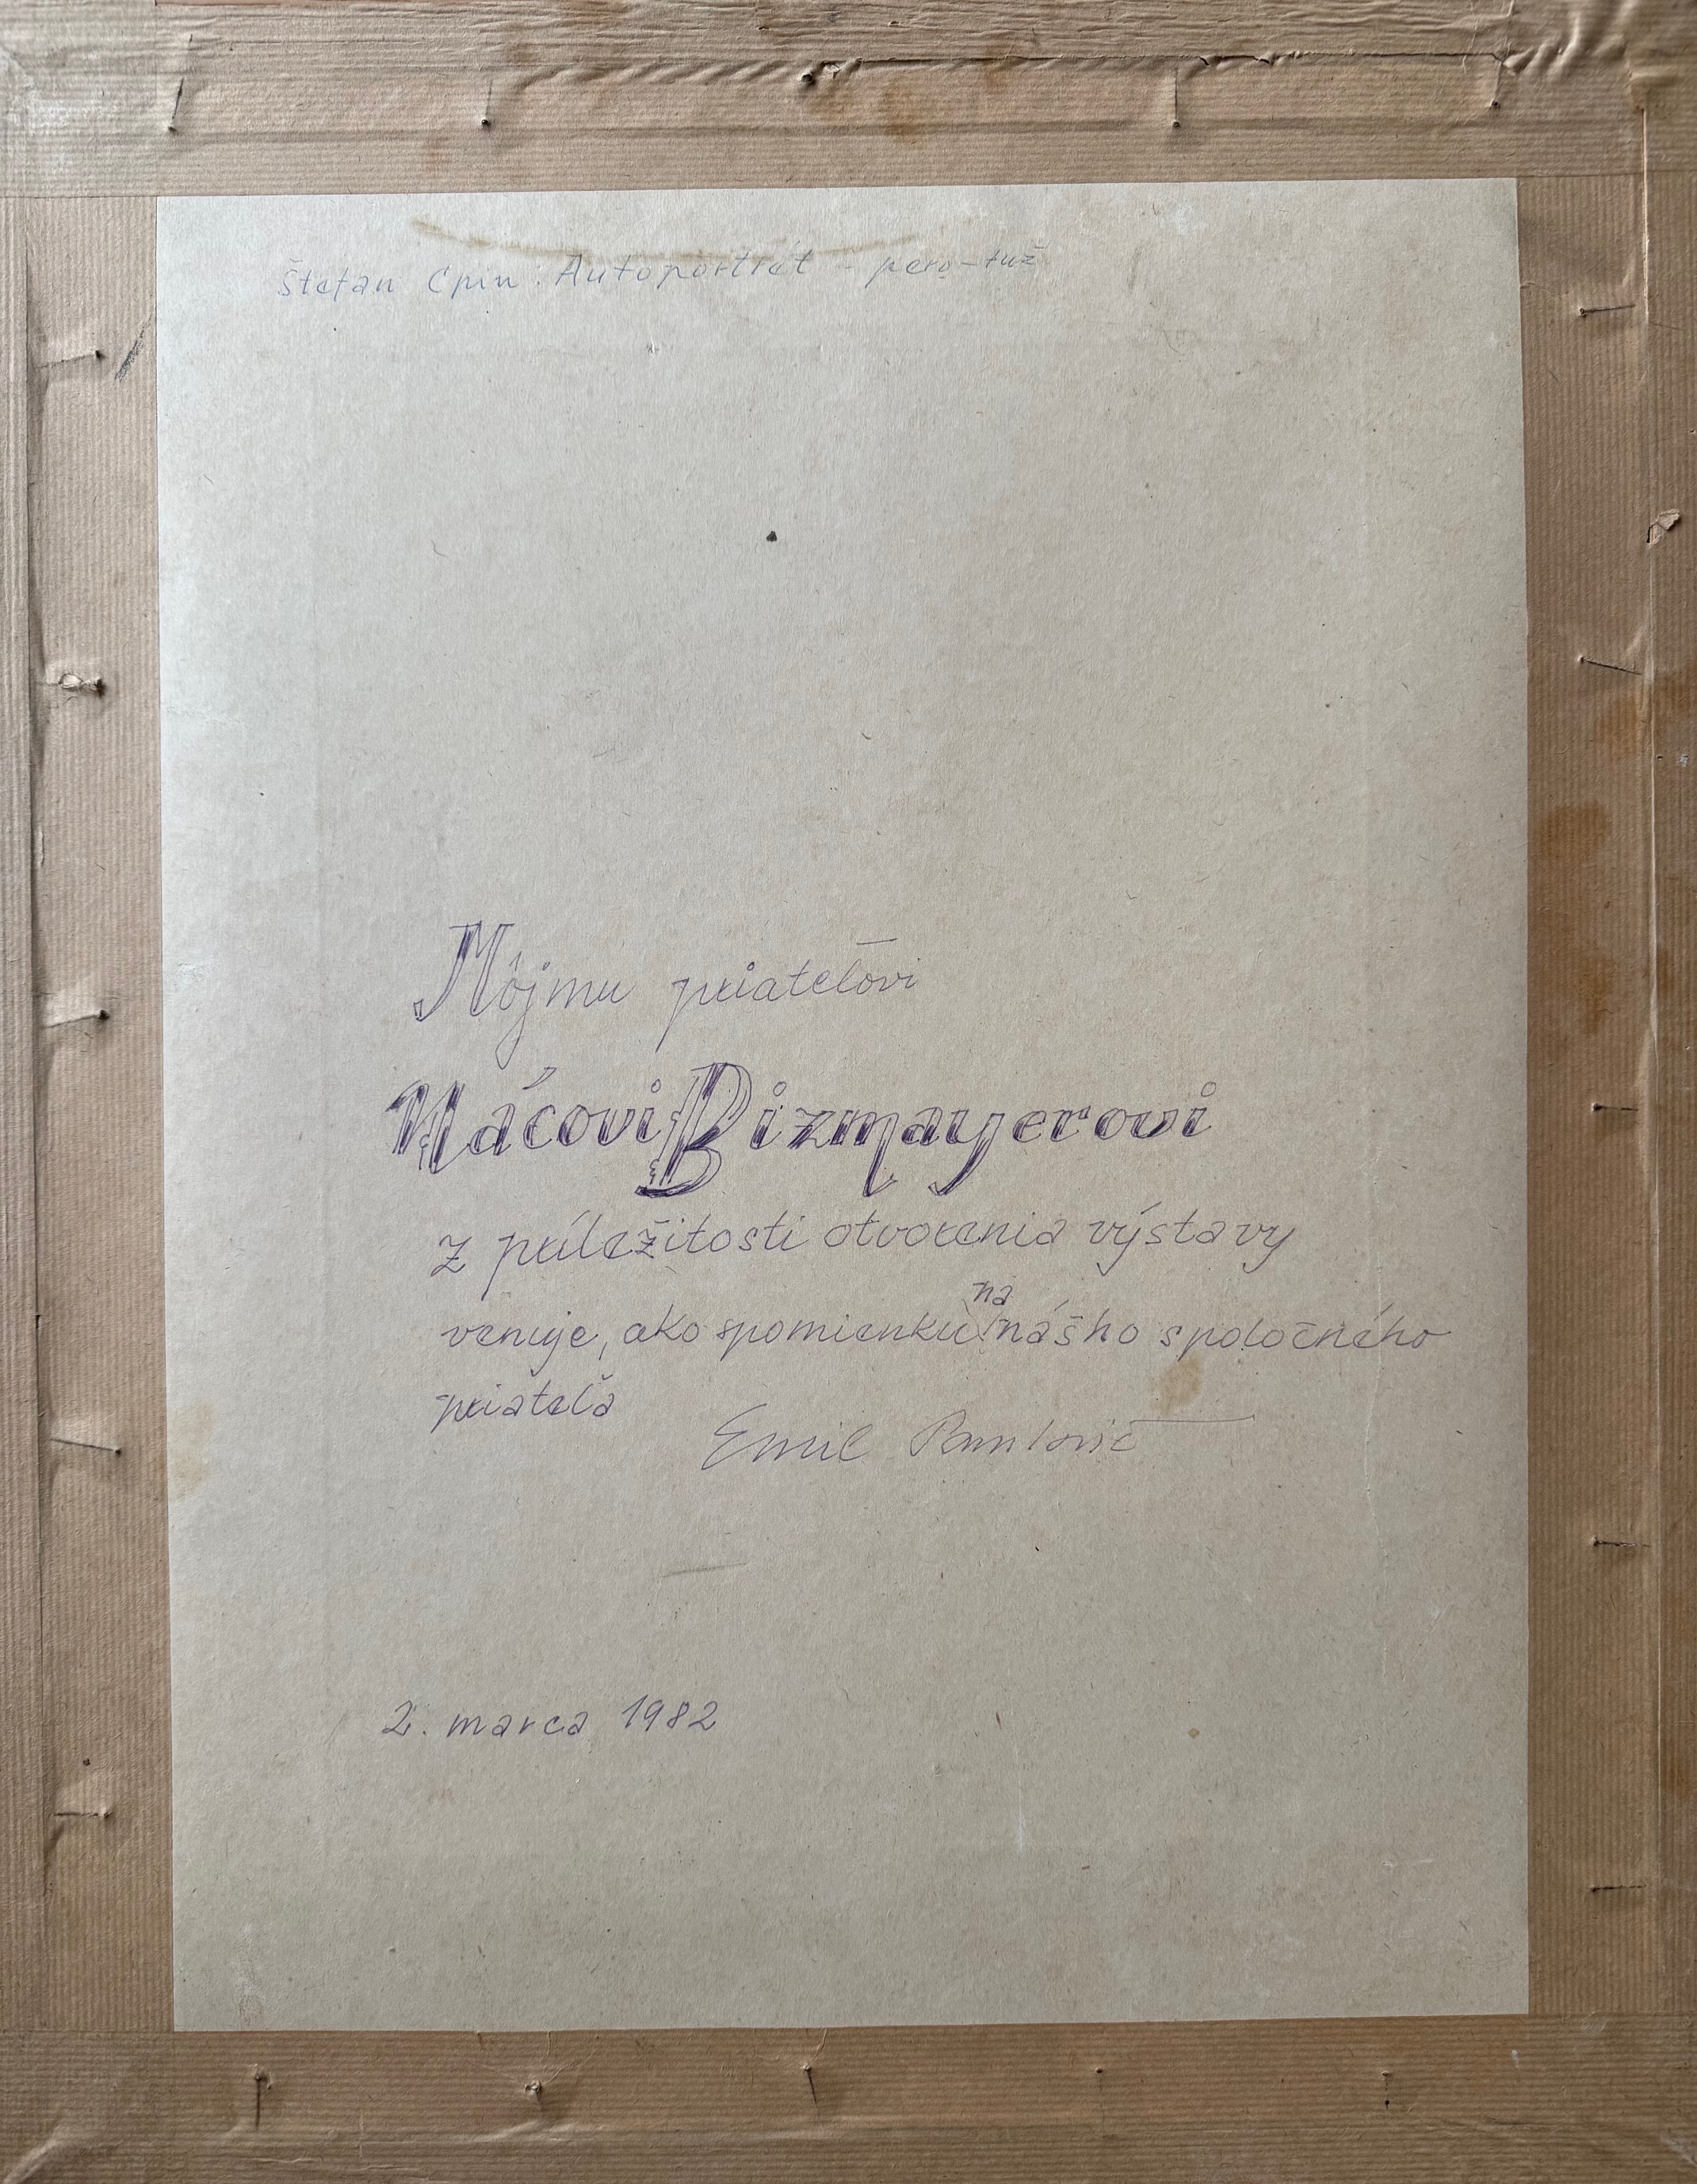 Štefan Cpin: Autoportrét - pero-tuž
Môjmu priatelovi
Nácovi Bizmayerovi
z príležitosti otvorenia výstavy
venuje, ako spomienku na nášho spoločného
priateľa
Emil Pavlovič
2. marca 1982